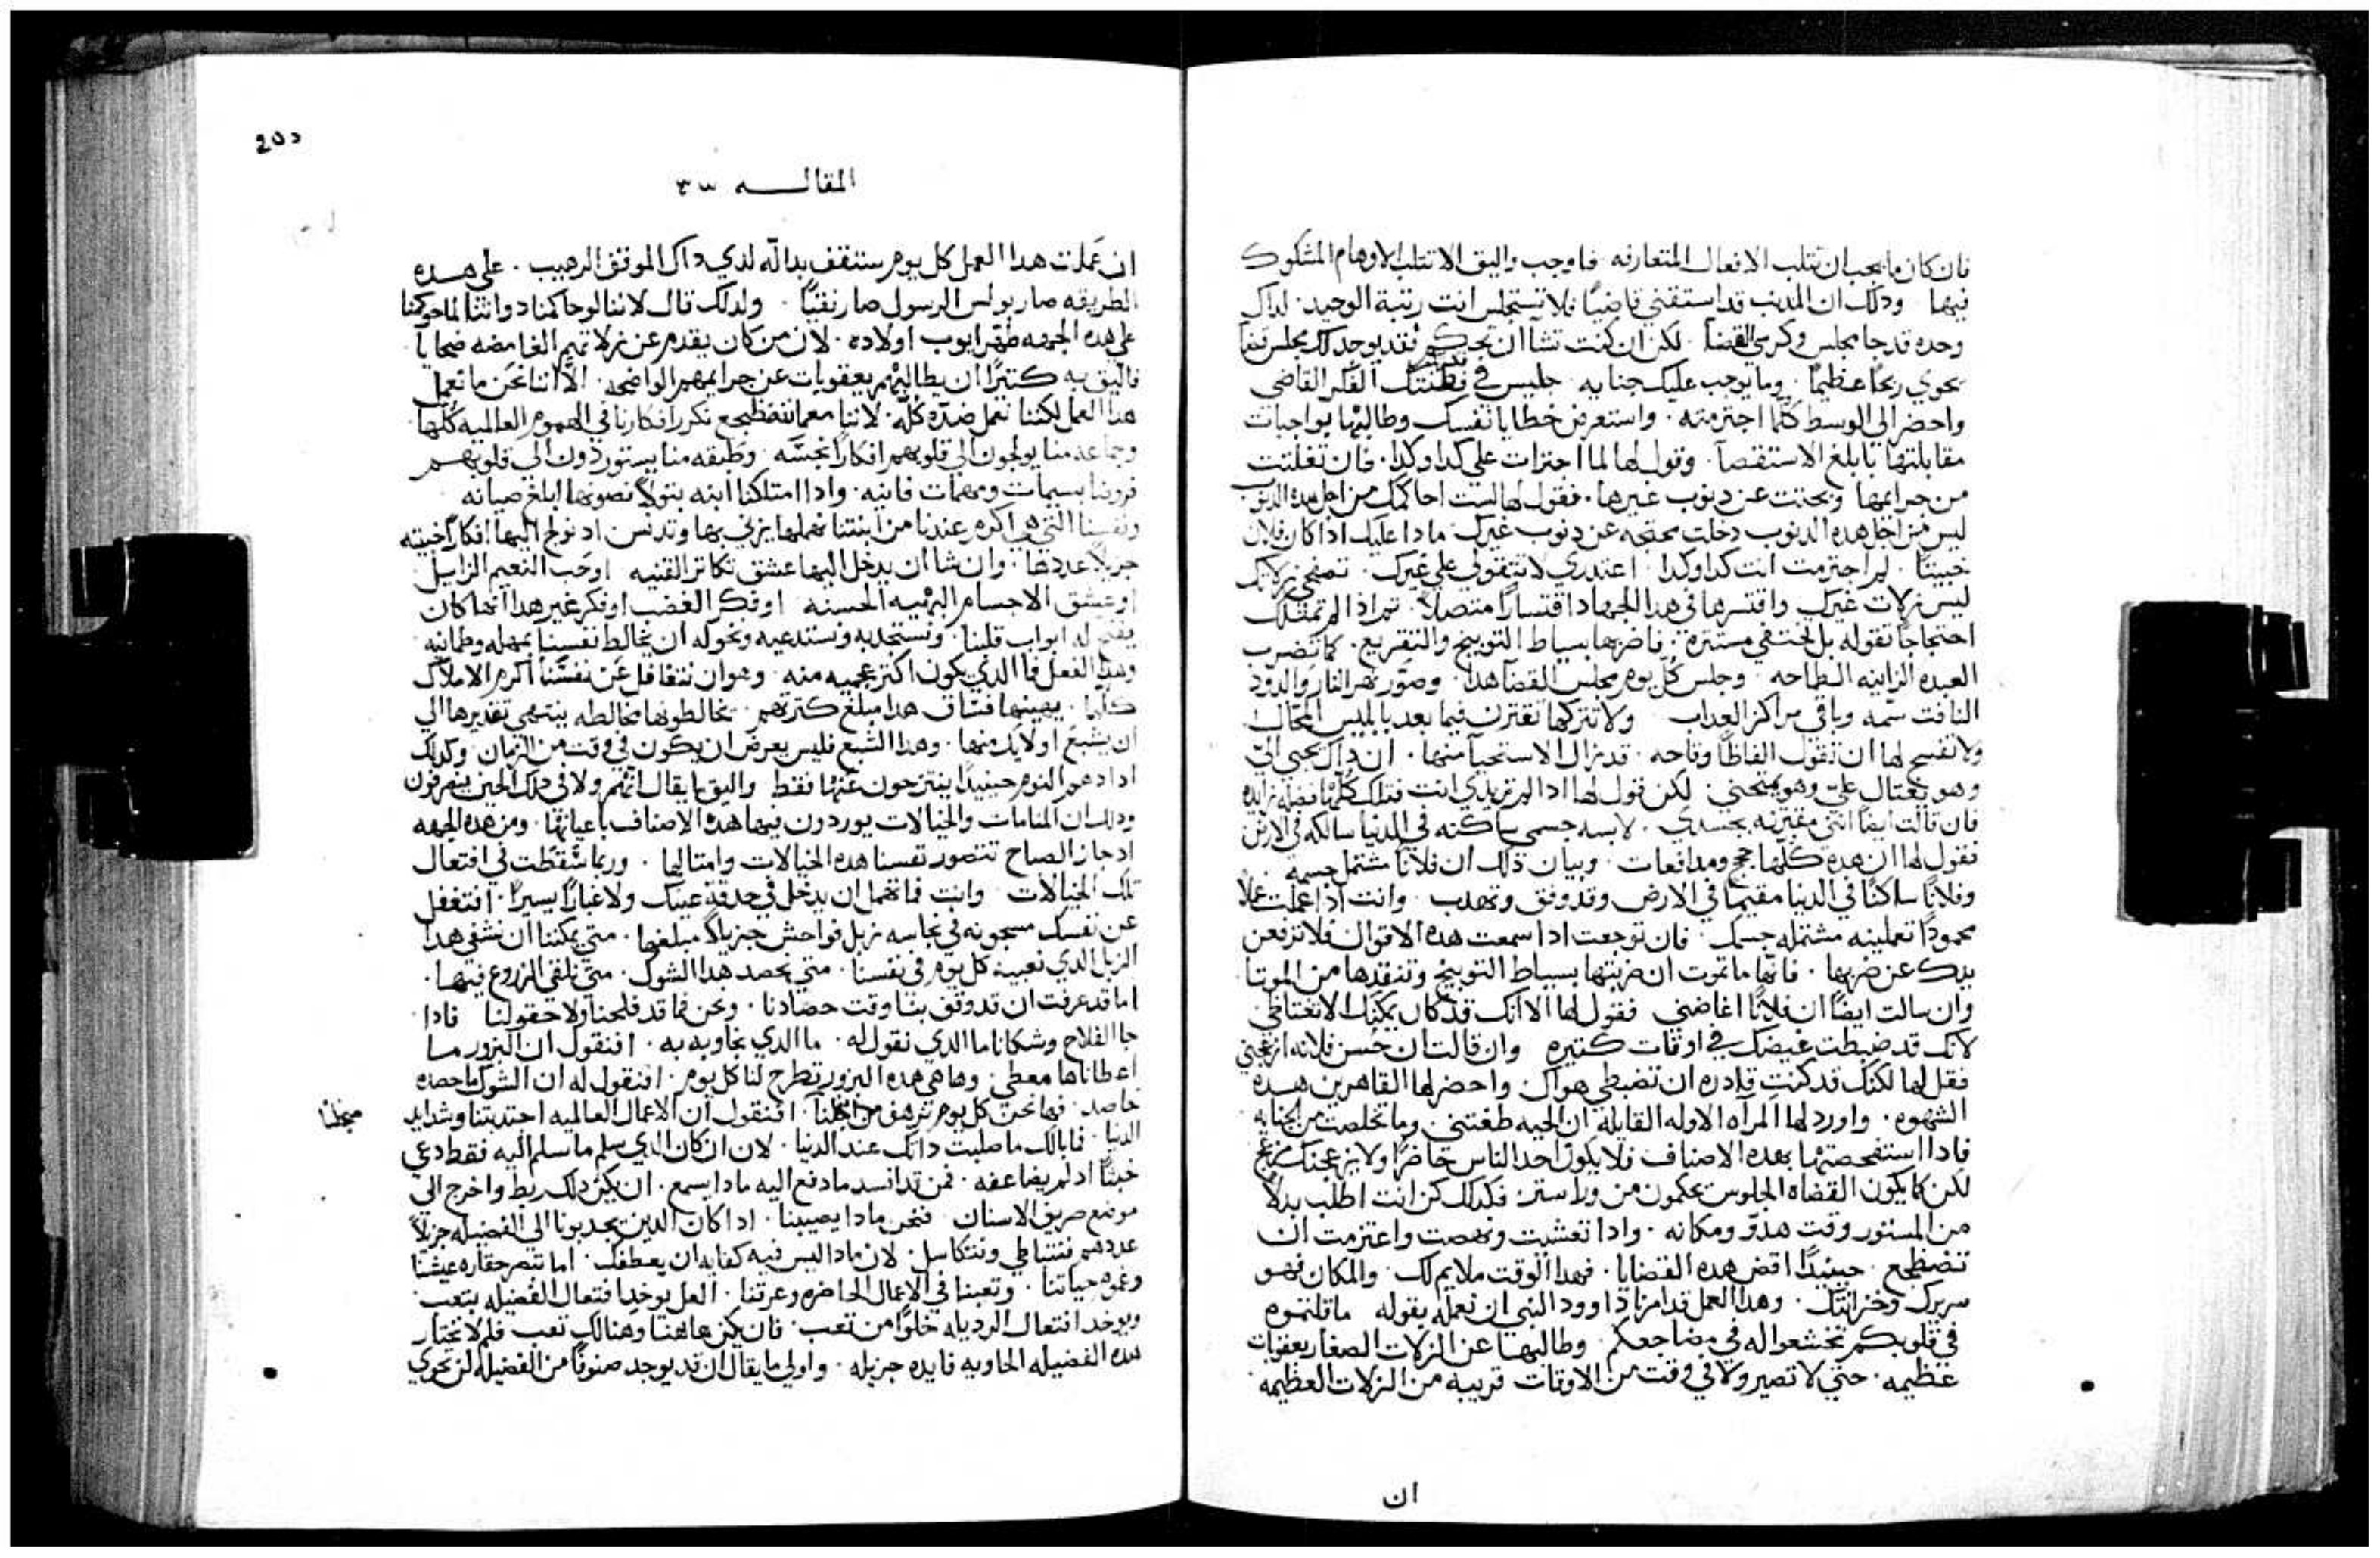 فان كان ما يجب ان تتلب الافعال المتعارفه فاوجب واليق الا تتلب الاوهام المشكوك
فيها ودلك ان المدنب قد استقني قاضيًا فلا تستجلس انت رتبة الوحيد لداك
وحده قد جا مجلس وكرسي القضا لكن ان كنت تشا ان تحكم فقد يوجد لك مجلس قضا
يحوي ربحًا عظيمًا وما يوجب عليك جنايه جليس في فطنتك الفكر القاضي
واحضر الي الوسط كلما اجترمته واستعرض خطايا نفسك وطالبها بواجبات
مقابلتها بابلغ الاستقصآ وقول لها لما اجترات علي كدا وكدا فان تفلتت
من جرايمها وبحتت عن دنوب غيرها فقول لها لست احاكمك من اجل هده الدنوب
ليس من اجل هده الدنوب دخلت محتجه عن دنوب غيرك مادا عليك ادا كان فلان
خبيتًا لم اجترمت انت كدا وكدا اعتدري لا تتقولي علي غيرك تصفحي زلاتك
ليس زلات غيرك واقتسرها في هدا الجهاد اقتسارًا متصلاً تم ادا لم تمتلك
احتجاجًا تقوله بل تختفي مستتره فاضربها بسياط التوبيخ والتقريع كما تضرب
العبده الزانيه الطماحه وجلس كل يوم مجلس القضآ هدا وصور نهر النار والدود
النافت سمه وباقي مراكز العداب ولا تتركها تقترن فيما بعد بابليس المحال
ولا تفسح لها ان تقول الفاظًا وقاحه قد زال الاستحيآ منها ان داك يجي الي
وهو يغتال علي وهو يمتحني لكن قول لها ادا لم تريدي انت فتلك كلها فضله زايده
فان قالت ايضًا انني مقترنه بجسدي لابسه جسمي ساكنه في الدنيا سالكه في الارض
فقول لها ان هده كلها حجج ومدافعات وبيان دلك ان فلانًا مشتمل جسمه
وفلانًا ساكنًا في الدنيا مقيمًا في الارض وقد وفق وتهدب وانت ادا عملت عملا
محمودًا تعملينه مشتمله جسمك فان توجعت ادا سمعت هده الاقوال فلا ترفعن
يدك عن ضربها فانها ما تموت ان ضربتها بسياط التوبيخ وتنقدها من الموتا
وان سالت ايضًا ان فلانًا اغاضني فقول لها الا انك قد كان يمكنك الا تغتاظي
لانك قد ضبطت غيضك في اوقات كتيره وان قالت ان حسن فلانه ازعجني
فقل لها لكنك قد كنت قادره ان تضبطي هواك واحضر لها القاهرين هده
الشهوه واورد لها المرآه الاوله القايله ان الحيه طغتني وما تخلصت من الجنايه
فادا استفحصتها بهده الاصناف فلا يكون احد الناس حاضرًا ولا يزعجنك مزعج
لكن كما يكون القضاه الجلوس يحكمون من ورا ستر فكدلك كن انت اطلب بدلاً
من المستور وقت هدوّ ومكانه وادا تعشيت ونهضت واعتزمت ان
تضطجع حينيدًا اقض هده القضايا فهدا الوقت ملايم لك والمكان فهو
سريرك وخزانتك وهدا العمل قد امرنا داوود النبي ان نعمله بقوله ما قلتموه
في قلوبكم تخشعوا له في مضاجعكم وطالبها عن الزلات الصغار بعقوبات
عظيمه حتي لا تصير ولا في وقت من الاوقات قريبه من الزلات العظيمه
ان
المقاله ٣٣
ان عملت هدا العمل كل يوم ستقف بدالّه لدي داك الموقف الرهيب علي هده
الطريقه صار بولس الرسول صار نقيًا ولدلك قال لاننا لو حاكمنا دواتنا لما حوكمنا
علي هده الجهه طهر ايوب اولاده لان من كان يقدم عن زلاتهم الغامضه ضحايآ
فاليق به كتيرًا ان يطالبهم بعقوبات عن جرايمهم الواضحه الا اننا نحن ما نعمل
هدا العمل لكننا نعمل ضده كله لاننا معما نضطجع نكرر افكارنا في الهموم العالميه كلها
وجماعه منا يولجون الي قلوبهم افكارًا نجسه وطبقه منا يستوردون الي قلوبهم
قروضا بسمات ومهمات فانيه وادا امتلكنا ابنه بتولاً نصونها ابلغ صيانه
ونفسنا التي هي اكرم عندنا من ابنتنا نهملها يزني بها وتدنس اد نولج اليها افكارًا خبيته
جزيلاً عددها وان شا ان يدخل اليها عشق تكاتر القنيه او حب النعيم الزايل
او عشق الاجسام البهيه الحسنه او فكر الغضب او فكر غير هدا ايها كان
يفتح له ابواب قلبنا ونستجدبه ونستدعيه ونخوله ان يخالط نفسنا بمهله وطمانيه
وهدا الفعل فما الدي يكون اكتر عجبيه منه وهو ان نتغافل عن نفسنا اكرم الاملاك
كلها يهينها فساق هدا مبلغ كترتهم يخالطونها مخالطه ينتهي تقديرها الي
ان يشبع اولايك منها وهدا الشبع فليس يعرض ان يكون في وقت من الزمان وكدلك
ادا دهم النوم حينيدًا ينتزحون عنها فقط واليق ما يقال انهم ولا في دلك الحين ينصرفون
ودلك ان المنامات والخيالات يوردون فيها هده الاصناف باعيانها ومن هده الجهه
اد جاز الصباح تتصور نفسنا هده الخيالات وامتالها وربما سقطت في افتعال
تلك الخيالات وانت فما تهمل ان يدخل في حدقة عينيك ولا غبارًا يسيرًا افتغفل
عن نفسك مسجونه في نجاسه زبل فواحش جزيلاً مبلغها متي يمكننا ان نشفي هدا
الزبل الدي نعبيه كل يوم في نفسنا متي نحصد هدا الشوك متي نلقي الزروع فيها
اما قد عرفت ان قد وقف بنا وقت حصادنا ونحن فما قد فلحنا ولا حقولنا فادا
جا الفلاح وشكانا ما الدي نقول له ما الدي نجاوبه به افنقول ان البزور ما
اعطاناها معطي وها هي هده البزور تطرح لنا كل يوم افنقول له ان الشوك ما حصده
حاصد فها نحن كل يوم نرهف منجلنآ افنقول ان الاعمال العالميه اجتدبتنا وشدايد
منجلنا
الدنيا فما بالك ما صلبت داتك عند الدنيا لان ان كان الدي سلم ما سلم اليه فقط دعي
خبتًا اد لم يضاعفه فمن قد افسد ما دفع اليه مادا يسمع ان يكن داك ربط واخرج الي
موضع صريف الاسنان فنحن مادا يصيبنا ادا كان الدين يجدبونا الي الفضيله جزيلاً
عددهم فنتباطي ونتكاسل لان مادا ليس فيه كفايه ان يعطفك اما تبصر حقاره عيشنا
وغموض حياتنا وتعبنا في الاعمال الحاضره وعرقنا العل يوخد افتعال الفضيله بتعب
ويوخد افتعال الرديله خلوًا من تعب فان يكن هاهنا وهنالك تعب فلم لا تختار
هده الفضيله الحاويه فايده جزيله واولي ما يقال ان قد يوجد صنوفًا من الفضيله لن تحوي